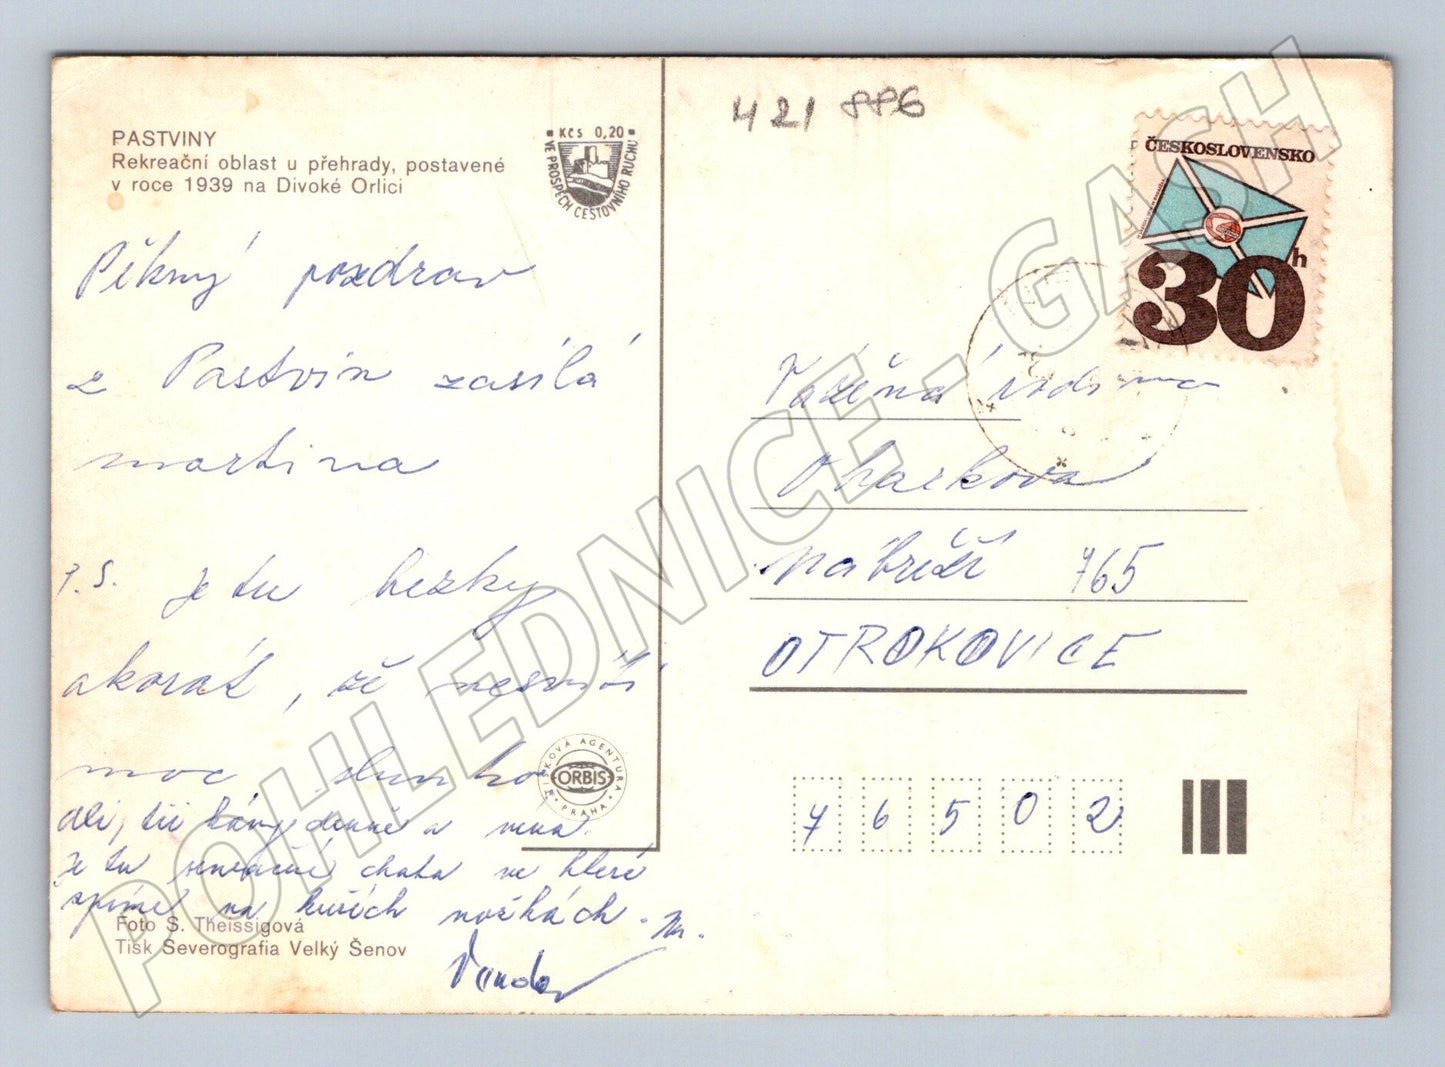 PASTVINY
Rekreační oblast u přehrady, postavené
v roce 1939 na Divoké Orlici
Kčs 0,20
VE PROSPĚCH CESTOVNÍHO RUCHU
421 886
ČESKOSLOVENSKO
30h
Pěkný pozdrav
z Pastvin zasílá
martina
P.S. je tu hezky
akorát, že nesvítí
moc slunko
Ali, tři kávy denně a
je tu senzační chata ve které
spíme na kuřích nožkách. M.
Vanda
TISKOVÁ AGENTURA
ORBIS
PRAHA
Foto S. Theissigová
Tisk Severografia Velký Šenov
Vážená rodina
Oharkova
Nábřeží 765
OTROKOVICE
76502
POHLEDNICE - GASH